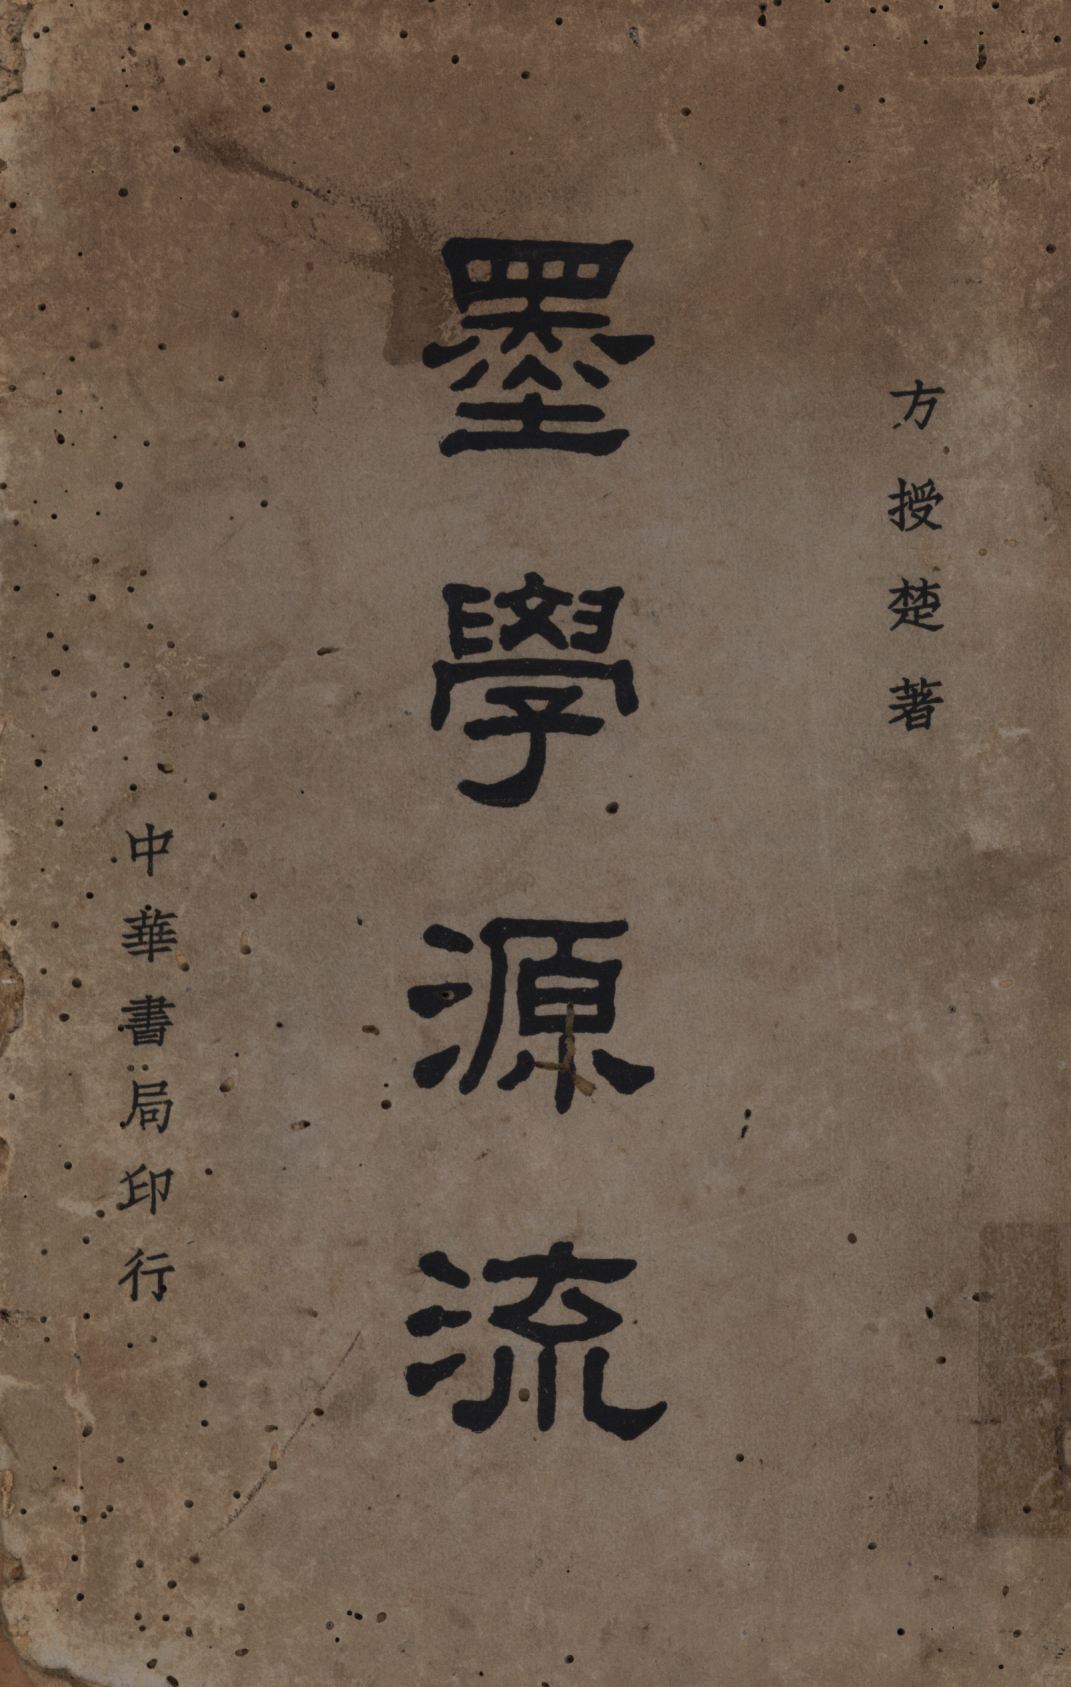 方授楚著
墨學源流
中華書局印行